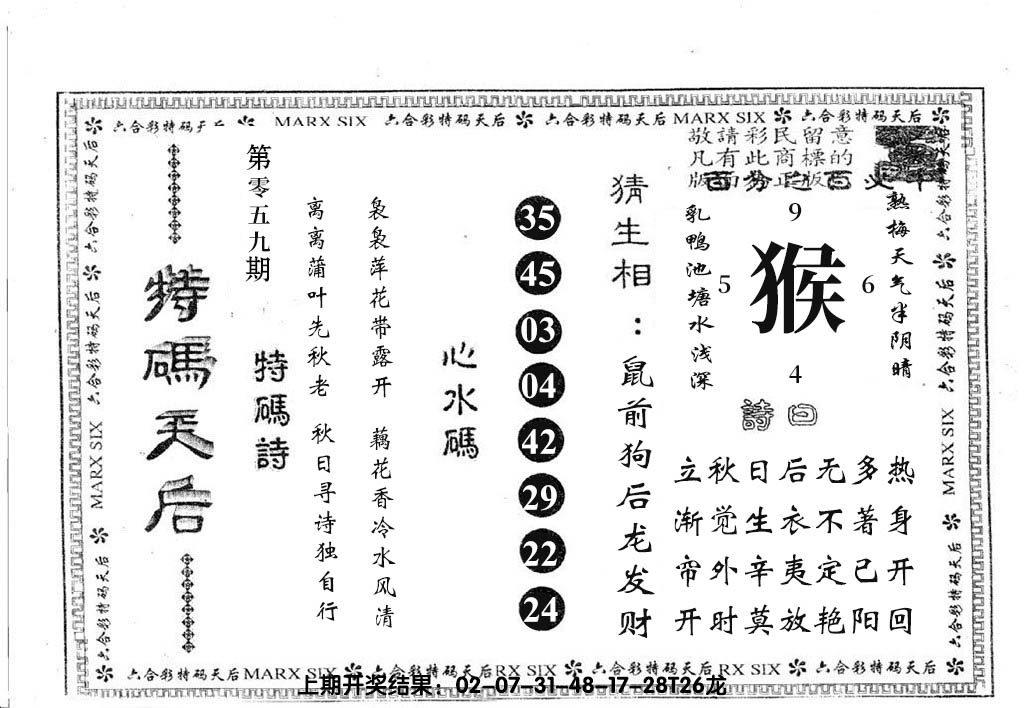 六合彩特码天后 MARX SIX 六合彩特码天后 六合彩特码天后 MARX SIX 六合彩特码天后
敬請彩民留意
凡有此商標的
版面為正版
熟梅天气半阴晴
乳鸭池塘水浅深
9
5 猴 6
4
詩曰
立秋日后无多热
渐觉生衣不著身
帘外辛夷定已开
开时莫放艳阳回
猜生相：鼠前狗后龙发财
35
45
03
04
42
29
22
24
心水碼
袅袅萍花带露开 藕花香冷水风清
离离蒲叶先秋老 秋日寻诗独自行
特碼詩
第零五九期
特碼天后
六合彩特码天后 六合彩特码天后 MARX SIX 六合彩特码天后
六合彩特码天后 六合彩特码天后 MARX SIX 六合彩特码天后
六合彩特码天后 MARX SIX 六合彩特码天后 RX SIX 六合彩特码天后 RX SIX 六合彩特码天后
上期开奖结果：02-07-31-48-17-28T26龙